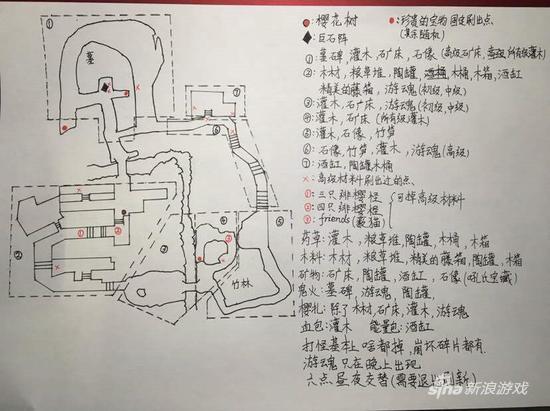 ●:樱花树
●:珍贵的宝物 固定刷出点
(其余随机)
◆:巨石阵
①:墓碑,灌木,矿床,石像(高级石矿床,所有级灌木)
②:木材,粮草堆,陶罐,木桶,木箱,酒缸
精美的藤箱,游魂(初级,中级)
③:灌木,石矿床,游魂(初级,中级)
④:灌木,石矿床(所有级灌木)
⑤:灌木,石像,竹笋
⑥:石像,竹笋,灌木,游魂(高级)
⑦:酒缸,陶罐木桶
×:高级材料刷出过的点
①:三只绯樱怪
②:四只绯樱怪
③:friends(豪猫)
可掉高级材料
药草:灌木,粮草堆,陶罐,木桶,木箱
木料:木材,粮草堆,精美的藤箱,陶罐,木箱
矿物:石矿床,陶罐,酒缸,石像(吼氏宝藏)
鬼火:墓碑,游魂,陶罐
樱札:除了木材,矿床,灌木,游魂
血包:灌木 能量包:酒缸
打怪基本上啥都掉,崩坏碎片都有
游魂只在晚上出现
六点昼夜交替(需要退出刷新)
①
墓
⑦
⑥
②
①
②
③
④
③
竹林
⑤
sina新浪游戏